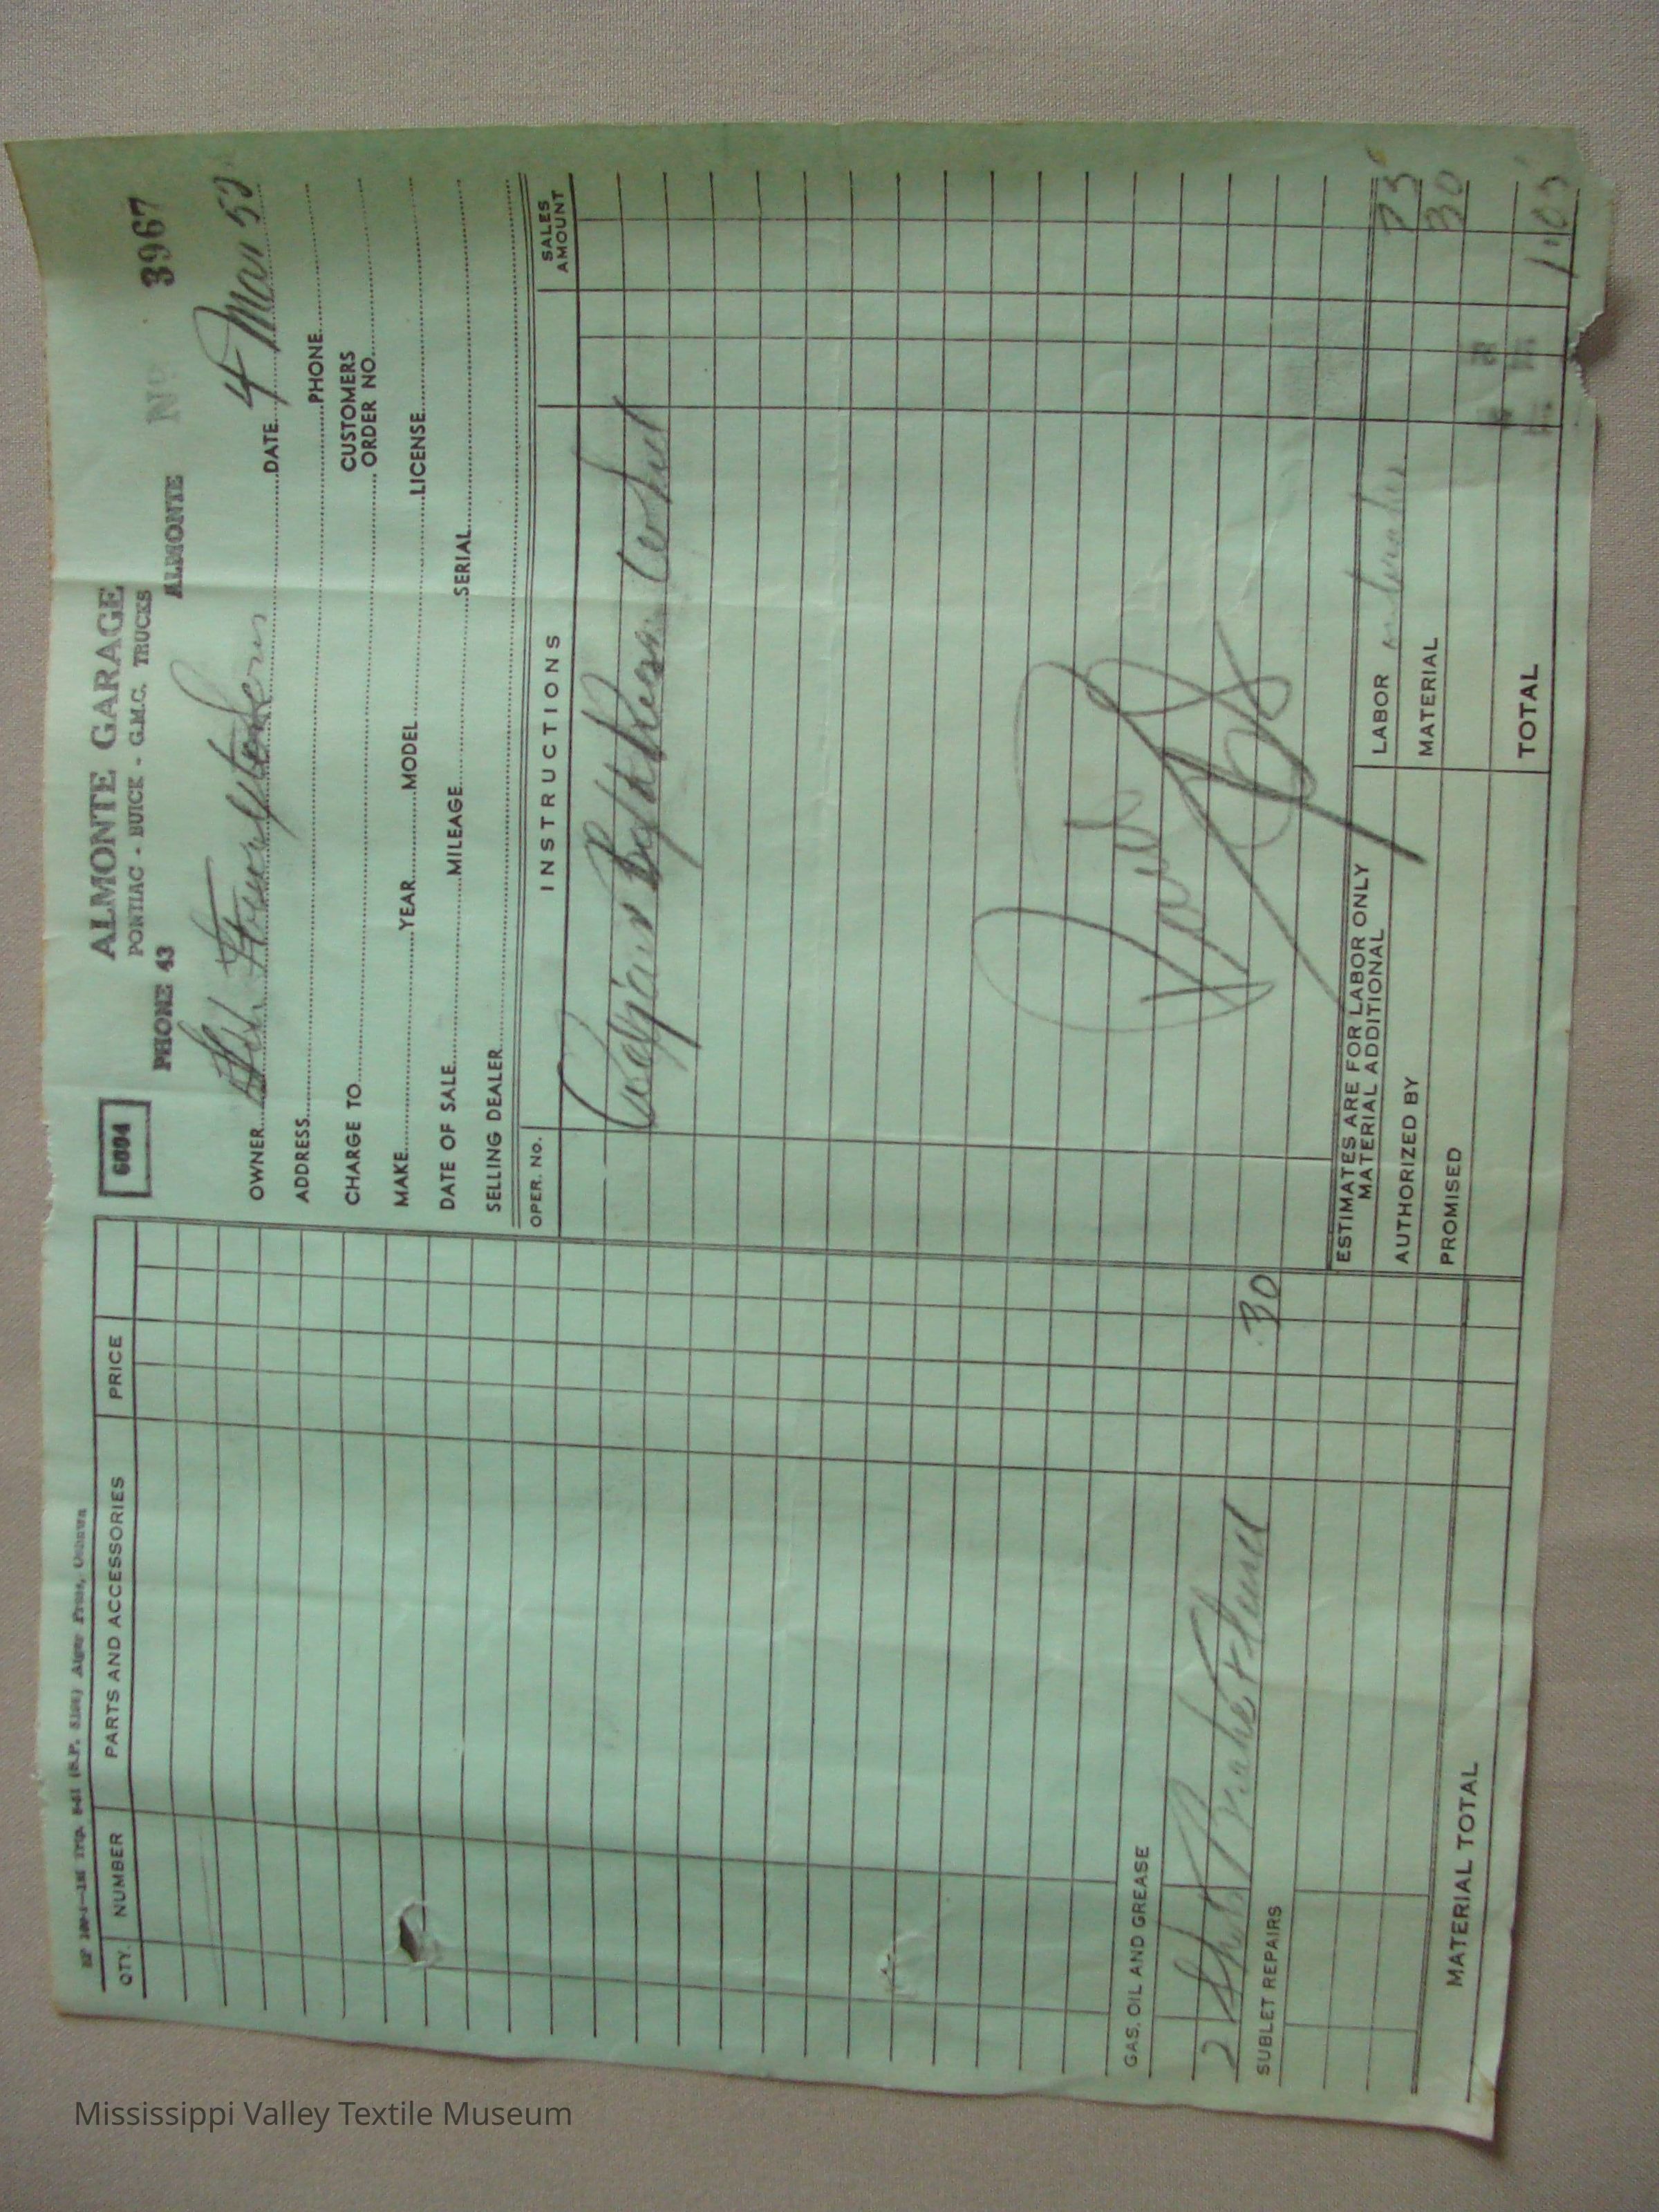 EF 100-1—1M Trip. 8-51 (S.P. 8106) Alger Press, Oshawa
QTY. NUMBER PARTS AND ACCESSORIES PRICE
GAS, OIL AND GREASE
2 Shots Brake Fluid .30
SUBLET REPAIRS
MATERIAL TOTAL
6004
ALMONTE GARAGE
PONTIAC - BUICK - G.M.C. TRUCKS
PHONE 43 ALMONTE No 3967
OWNER DATE 4 Mar 53
ADDRESS PHONE
CHARGE TO CUSTOMERS ORDER NO.
MAKE YEAR MODEL LICENSE
DATE OF SALE MILEAGE SERIAL
SELLING DEALER
OPER. No. INSTRUCTIONS SALES AMOUNT
Adjust
Paid
ESTIMATES ARE FOR LABOR ONLY
MATERIAL ADDITIONAL
LABOR 75
AUTHORIZED BY
MATERIAL 30
PROMISED
TOTAL 1.05
Mississippi Valley Textile Museum